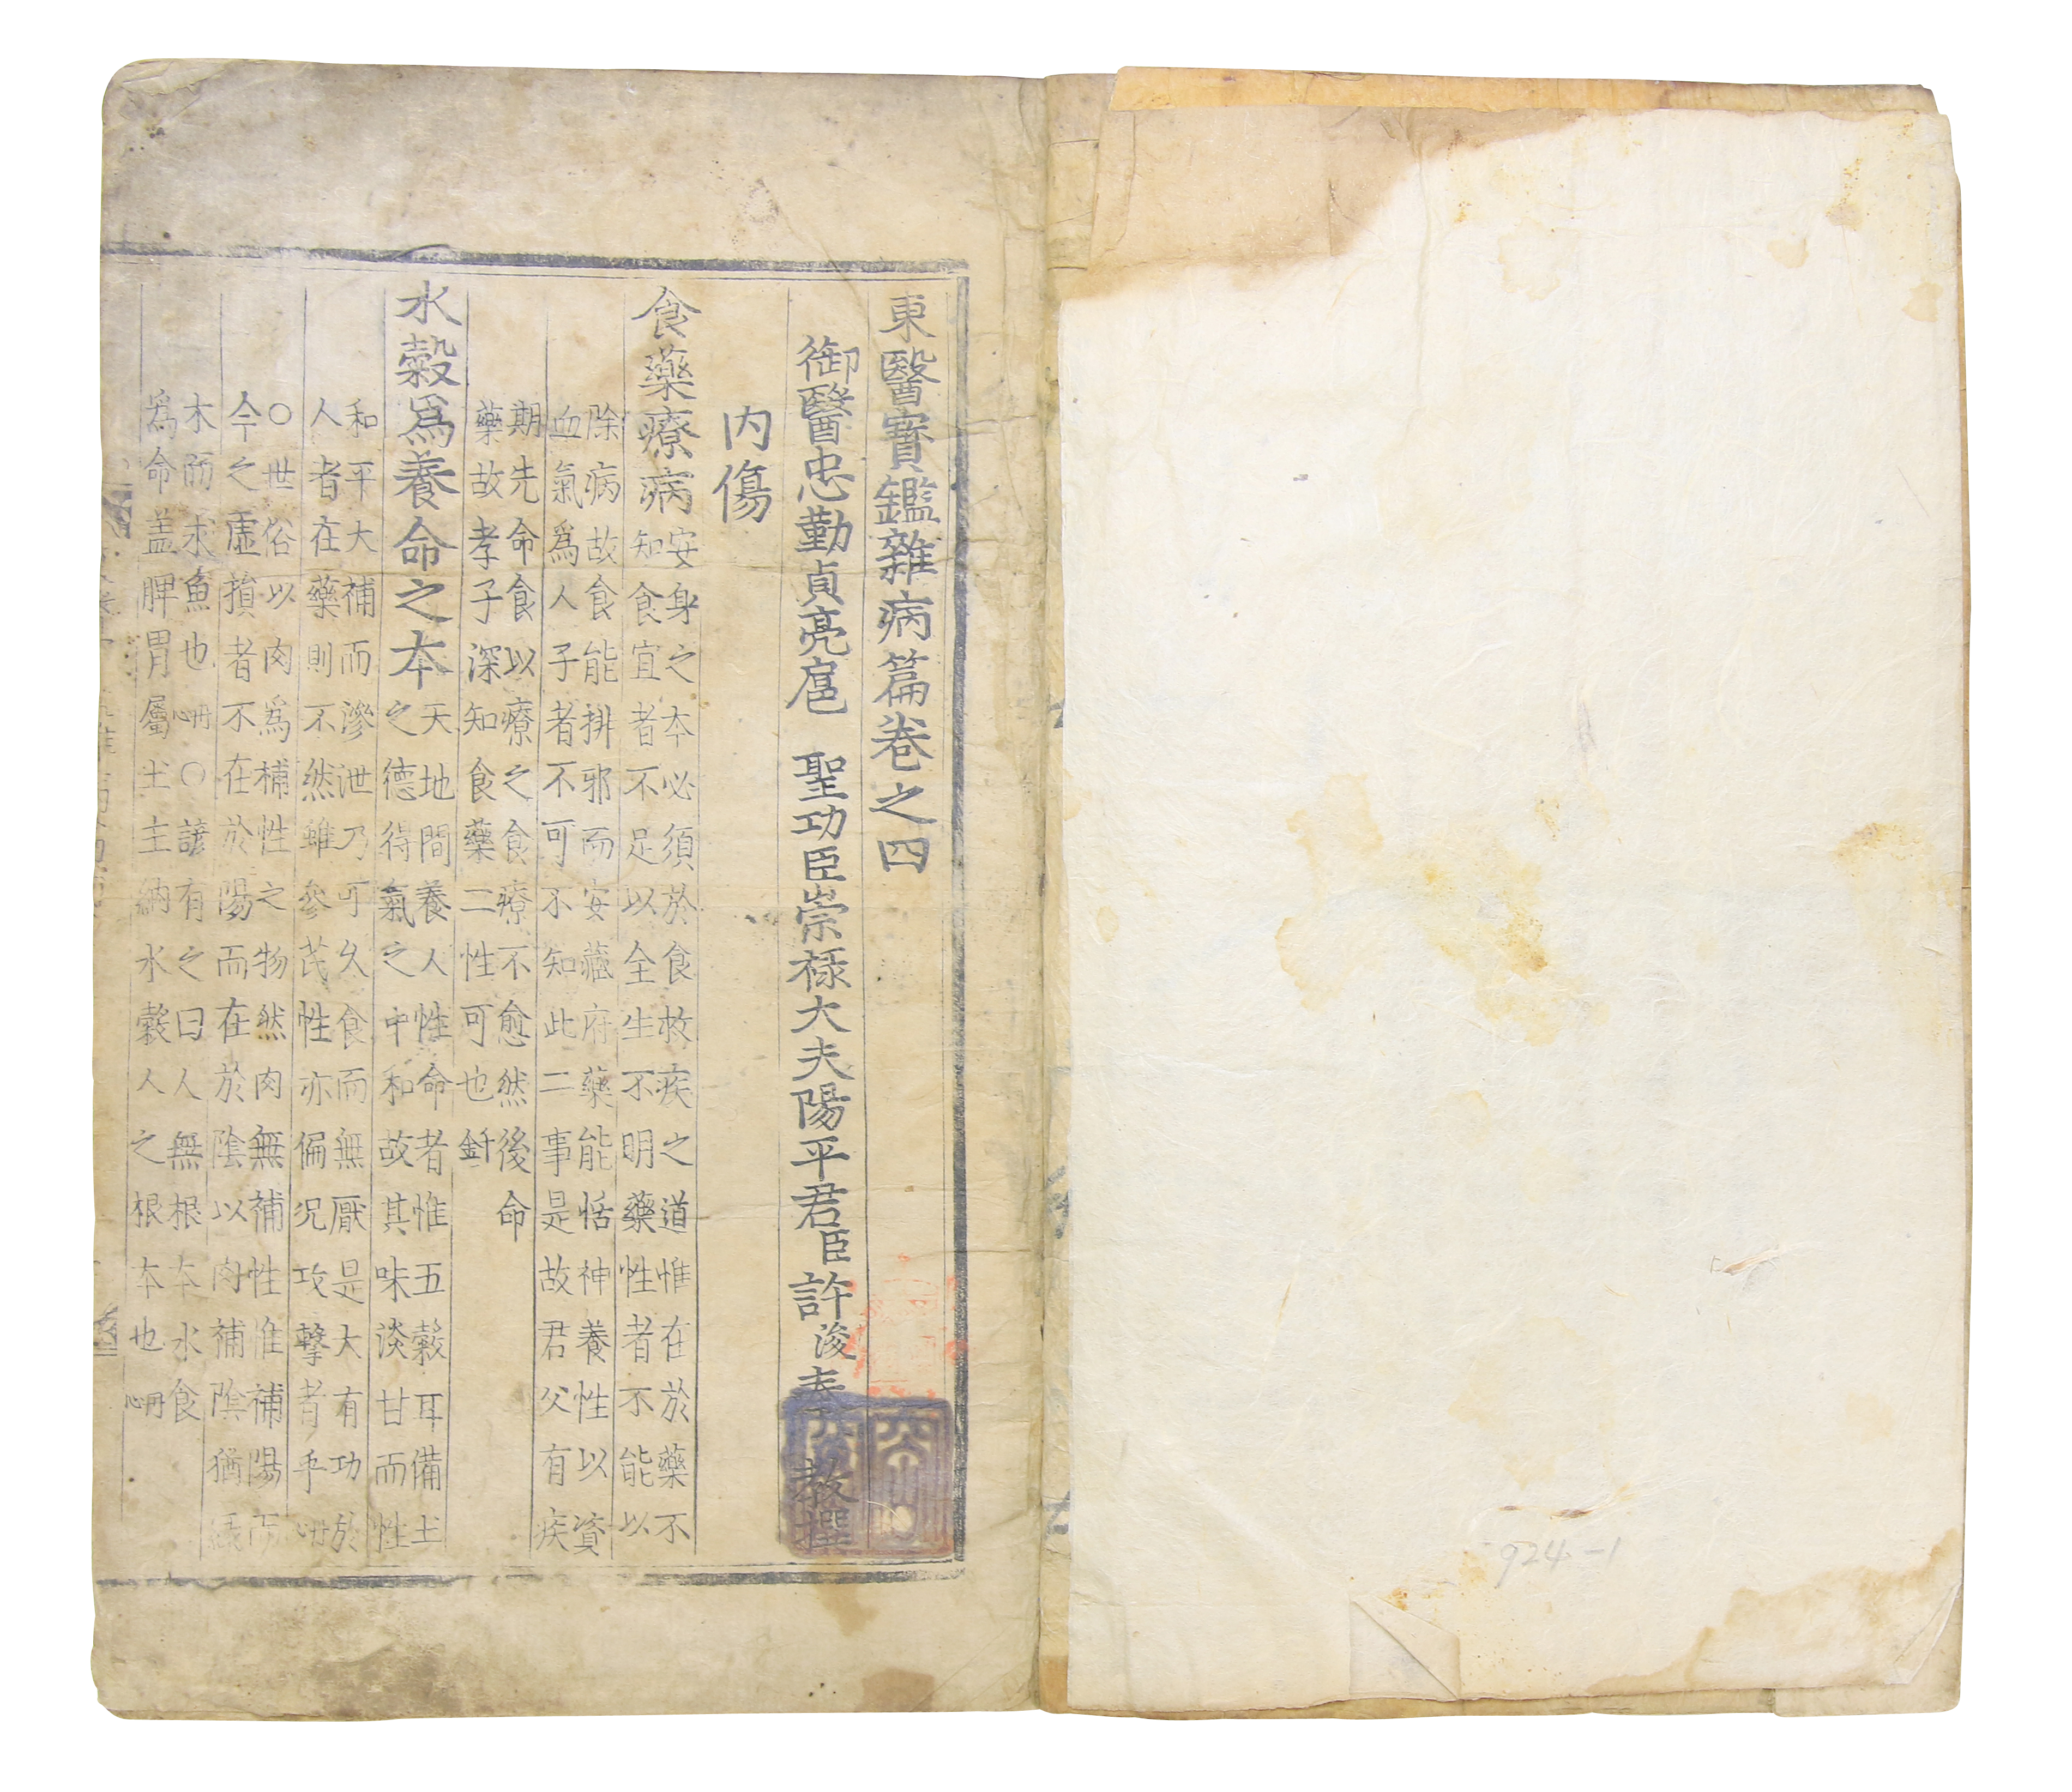 東醫寶鑑雜病篇卷之四
御醫忠勤貞亮扈 聖功臣崇祿大夫陽平君臣許浚奉 教撰
內傷
食藥療病
安身之本必須於食救疾之道惟在於藥不
知食宜者不足以全生不明藥性者不能以
除病故食能排邪而安藏府藥能恬神養性以資
血氣爲人子者不可不知此二事是故君父有疾
期先命食以療之食療不愈然後命
藥故孝子深知食藥二性可也
水穀爲養命之本
天地間養人性命者惟五穀耳備土
之德得氣之中和故其味淡甘而性
和平大補而滲泄乃可久食而無厭是大有功於
人者在藥則不然雖參芪性亦偏況攻擊者乎
○世俗以肉爲補性之物然肉無補性惟補陽而
今之虛損者不在於陽而在於陰以肉補陰猶
木而求魚也 ○諺有之曰人無根本水食
爲命盖脾胃屬土主納水穀人之根本也
924-1